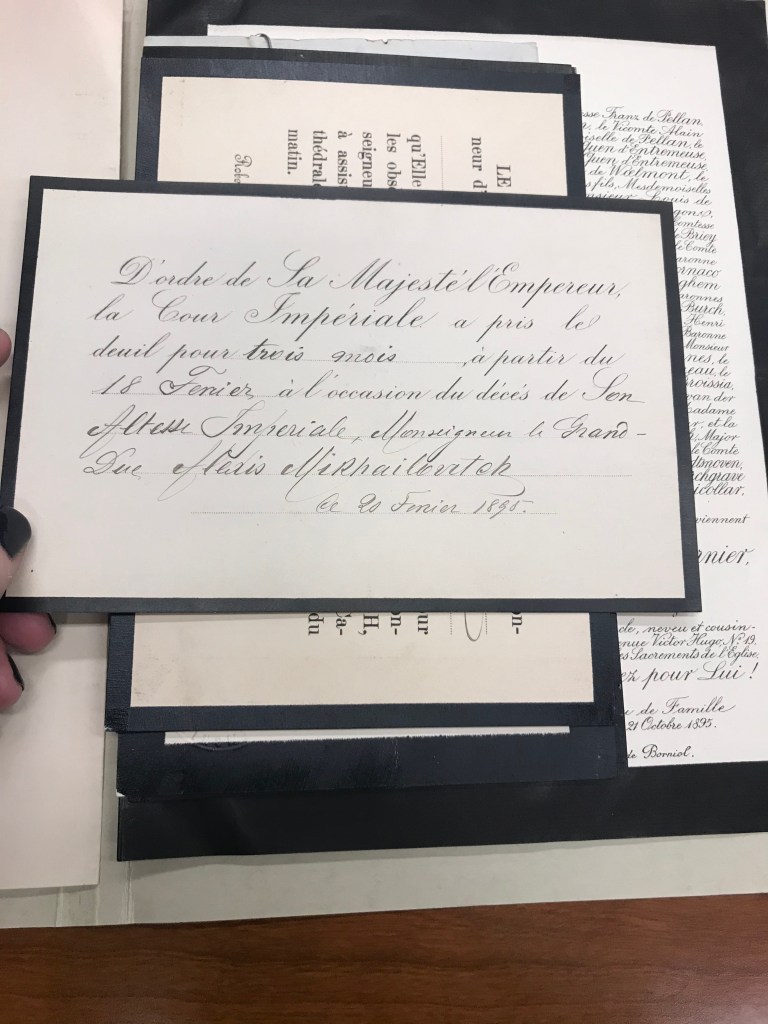 D'ordre de Sa Majesté l'Empereur,
la Cour Impériale a pris le
deuil pour trois mois, à partir du
18 Fevrier, à l'occasion du décès de Son
Altesse Imperiale, Monseigneur le Grand-
Duc Alexis Mikhailovitch
Ce 20 Fevrier 1895.
LE
neur d'
qu'Elle
les obs
seigneu
à assis
thédral
matin.
Robe
on-
our
on-
H,
Ca-
du
sse Franz de Pellan,
, le Vicomte Alain
iselle de Pellan, le
Guen d'Entremeuse,
Guen d'Entremeuse
de Woelmont, le
s fils, Mesdemoiselles
nsieur Louis de
omtesse
de Briey
le Comte
aronne
rnaco
ghem
aronnes
Burch,
Henri
Baronne
Monsieur
nes, le
eau, le
roissia,
van der
adame
r, et la
Major
le Comte
chgrave
icollar,
viennent
rnier,
cle, neveu et cousin-
enue Victor Hugo, No. 19,
es Sacrements de l'Eglise.
ez pour Lui !
u de Famille
21 Octobre 1895.
de Borniol.